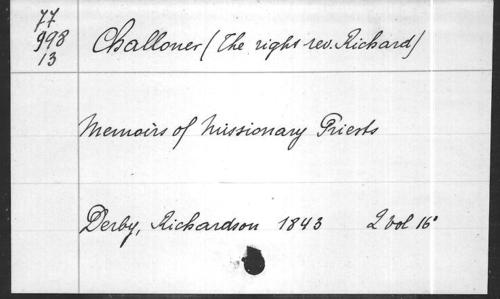 77
998
13
Challoner (The right rev. Richard)
Memoirs of Missionary Priests
Derby, Richardson 1843 2 vol 16°